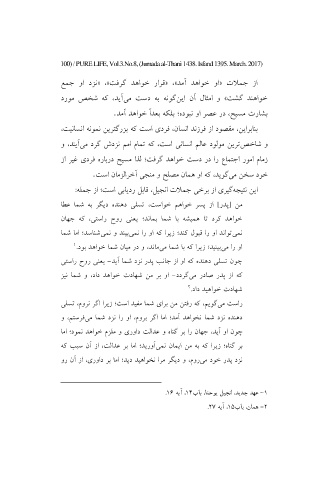 100) / PURE LIFE, Vol.3.No.8, (Jumada al-Thani 1438. Isfand 1395. March. 2017)
از جملات «او خواهد آمد»، «قرار خواهد گرفت»، «نزد او جمع
خواهند گشت» و امثال آن این‌گونه به دست می‌آید، که شخص مورد
بشارت مسیح، در عصر او نبوده؛ بلکه بعداً خواهد آمد.
بنابراین، مقصود از فرزند انسان، فردی است که بزرگترین نمونه انسانیت،
و شاخص‌ترین مولود عالم انسانی است، که تمام امم نزدش گرد می‌آیند، و
زمام امور اجتماع را در دست خواهد گرفت؛ لذا مسیح درباره فردی غیر از
خود سخن می‌گوید، که او همان مصلح و منجی آخرالزمان است.
این نتیجه‌گیری از برخی جملات انجیل، قابل ردیابی است؛ از جمله:
من [پدر] از پسر خواهم خواست، تسلی دهنده دیگر به شما عطا
خواهد کرد تا همیشه با شما بماند؛ یعنی روح راستی، که جهان
نمی‌تواند او را قبول کند؛ زیرا که او را نمی‌بیند و نمی‌شناسد؛ اما شما
او را می‌بینید؛ زیرا که با شما می‌ماند، و در میان شما خواهد بود.۱
چون تسلی دهنده که او از جانب پدر نزد شما آید- یعنی روح راستی
که از پدر صادر می‌گردد- او بر من شهادت خواهد داد، و شما نیز
شهادت خواهید داد.۲
راست می‌گویم، که رفتن من برای شما مفید است؛ زیرا اگر نروم، تسلی
دهنده نزد شما نخواهد آمد؛ اما اگر بروم، او را نزد شما می‌فرستم، و
چون او آید، جهان را بر گناه و عدالت داوری و ملزم خواهد نمود؛ اما
بر گناه؛ زیرا که به من ایمان نمی‌آورید؛ اما بر عدالت، از آن سبب که
نزد پدر خود می‌روم، و دیگر مرا نخواهید دید؛ اما بر داوری، از آن رو
۱- عهد جدید، انجیل یوحنا، باب۱۴، آیه ۱۶.
۲- همان، باب۱۵، آیه ۲۷.